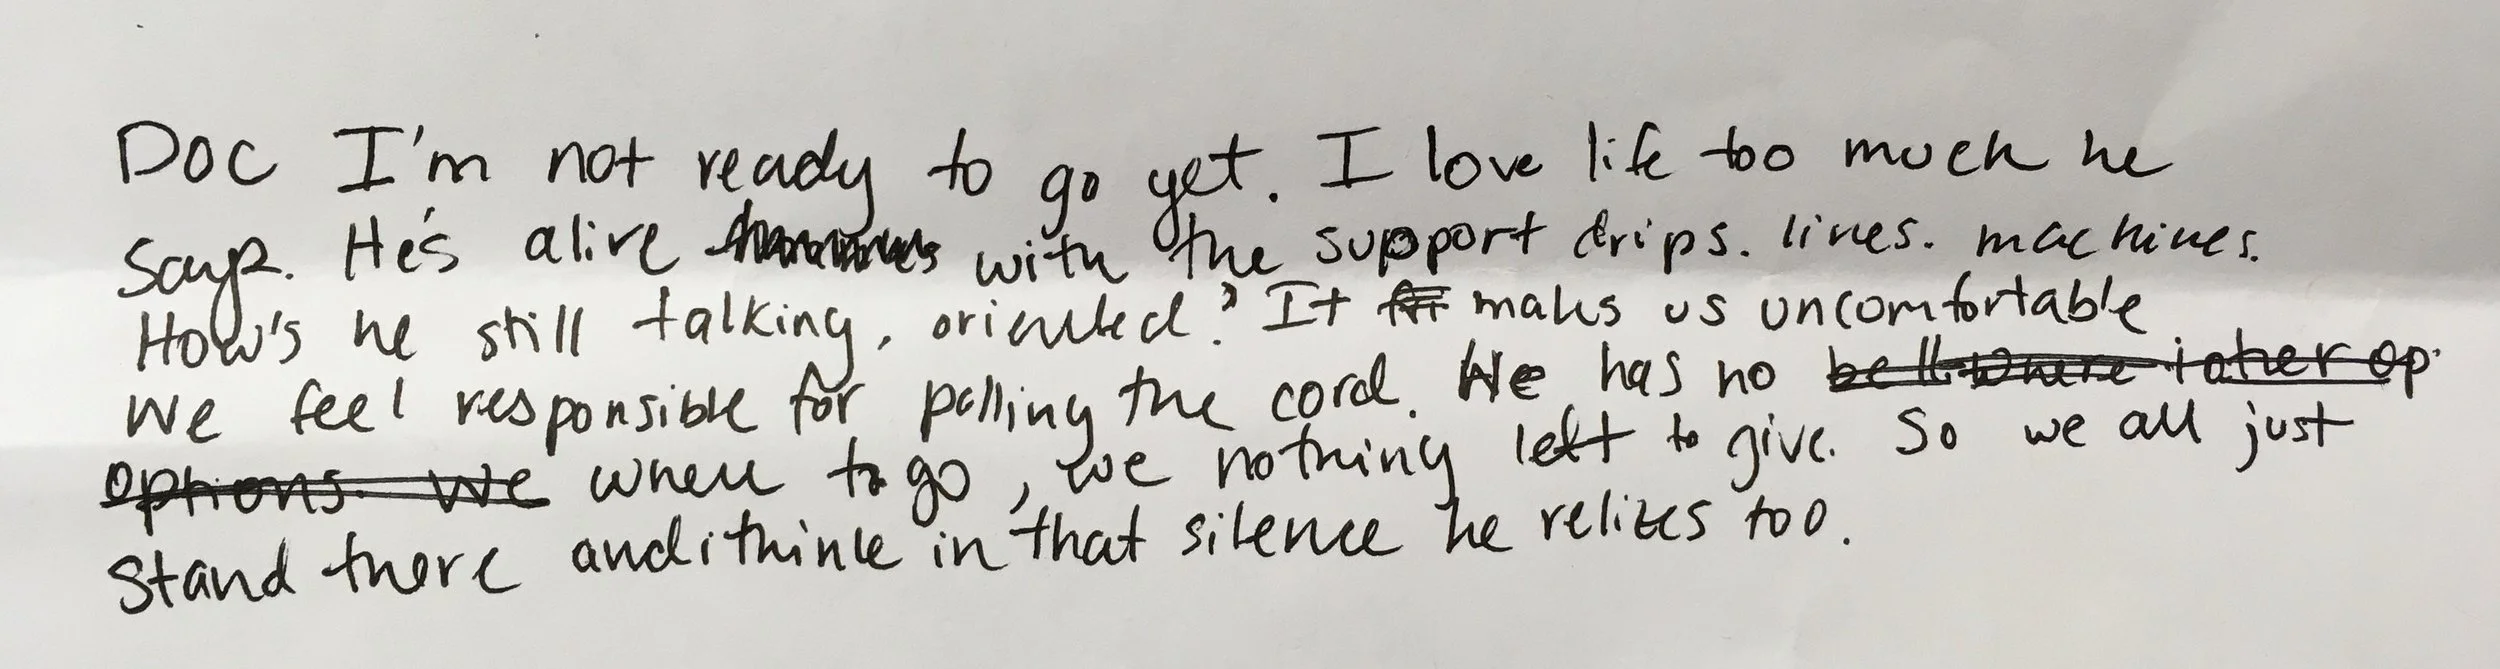 Doc I'm not ready to go yet. I love life too much he
says. He's alive with the support drips. lines. machines.
How's he still talking, oriented? It makes us uncomfortable.
We feel responsible for pulling the cord. He has no
options. We when to go, we nothing left to give. So we all just
stand there and i think in that silence he relizes too.